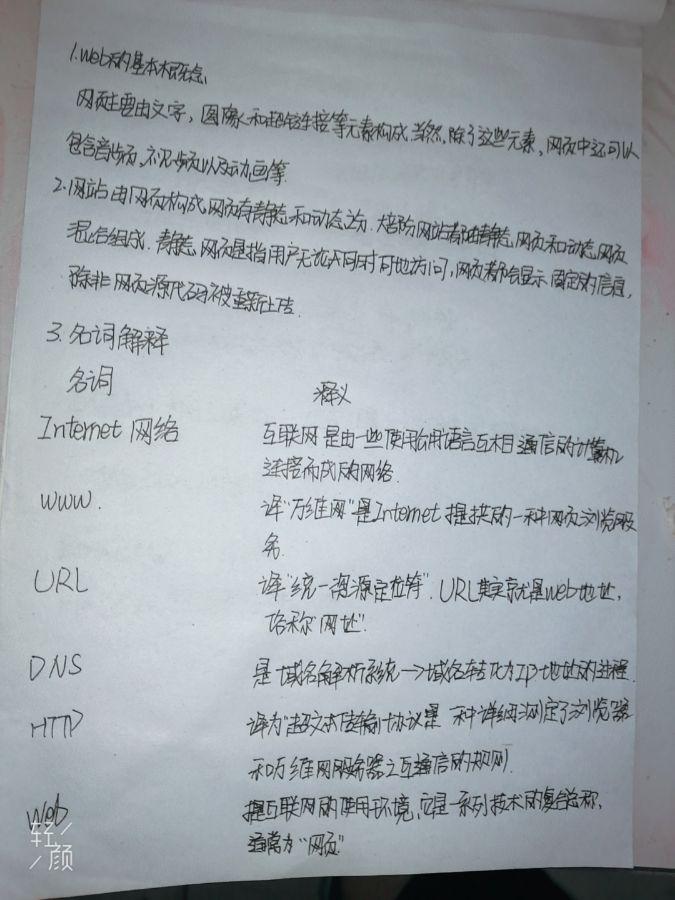 1.Web的基本概念
网页主要由文字，图像和超链接等元素构成.当然,除了这些元素,网页中还可以
包含音频,视频以及动画等.
2.网站由网页构成,网页有静态和动态之分.大部分网站都由静态网页和动态网页
混合组成.静态网页是指用户无论何时何地访问,网页都会显示固定的信息,
除非网页源代码被重新上传.
3.名词解释
名词 释义
Internet 网络 互联网是由一些使用公用语言互相通信的计算机
连接而成的网络.
WWW. 译"万维网"是Internet提供的一种网页浏览服
务.
URL 译"统一资源定位符".URL其实就是web地址,
俗称"网址"
DNS 是域名解析系统→域名转化为IP地址的过程.
HTTP 译为"超文本传输协议是一种详细规定了浏览器
和万维网服务器之互通信的规则.
Web 是互联网的使用环境,它是一系列技术的复合总称,
通常为"网页"
轻
颜